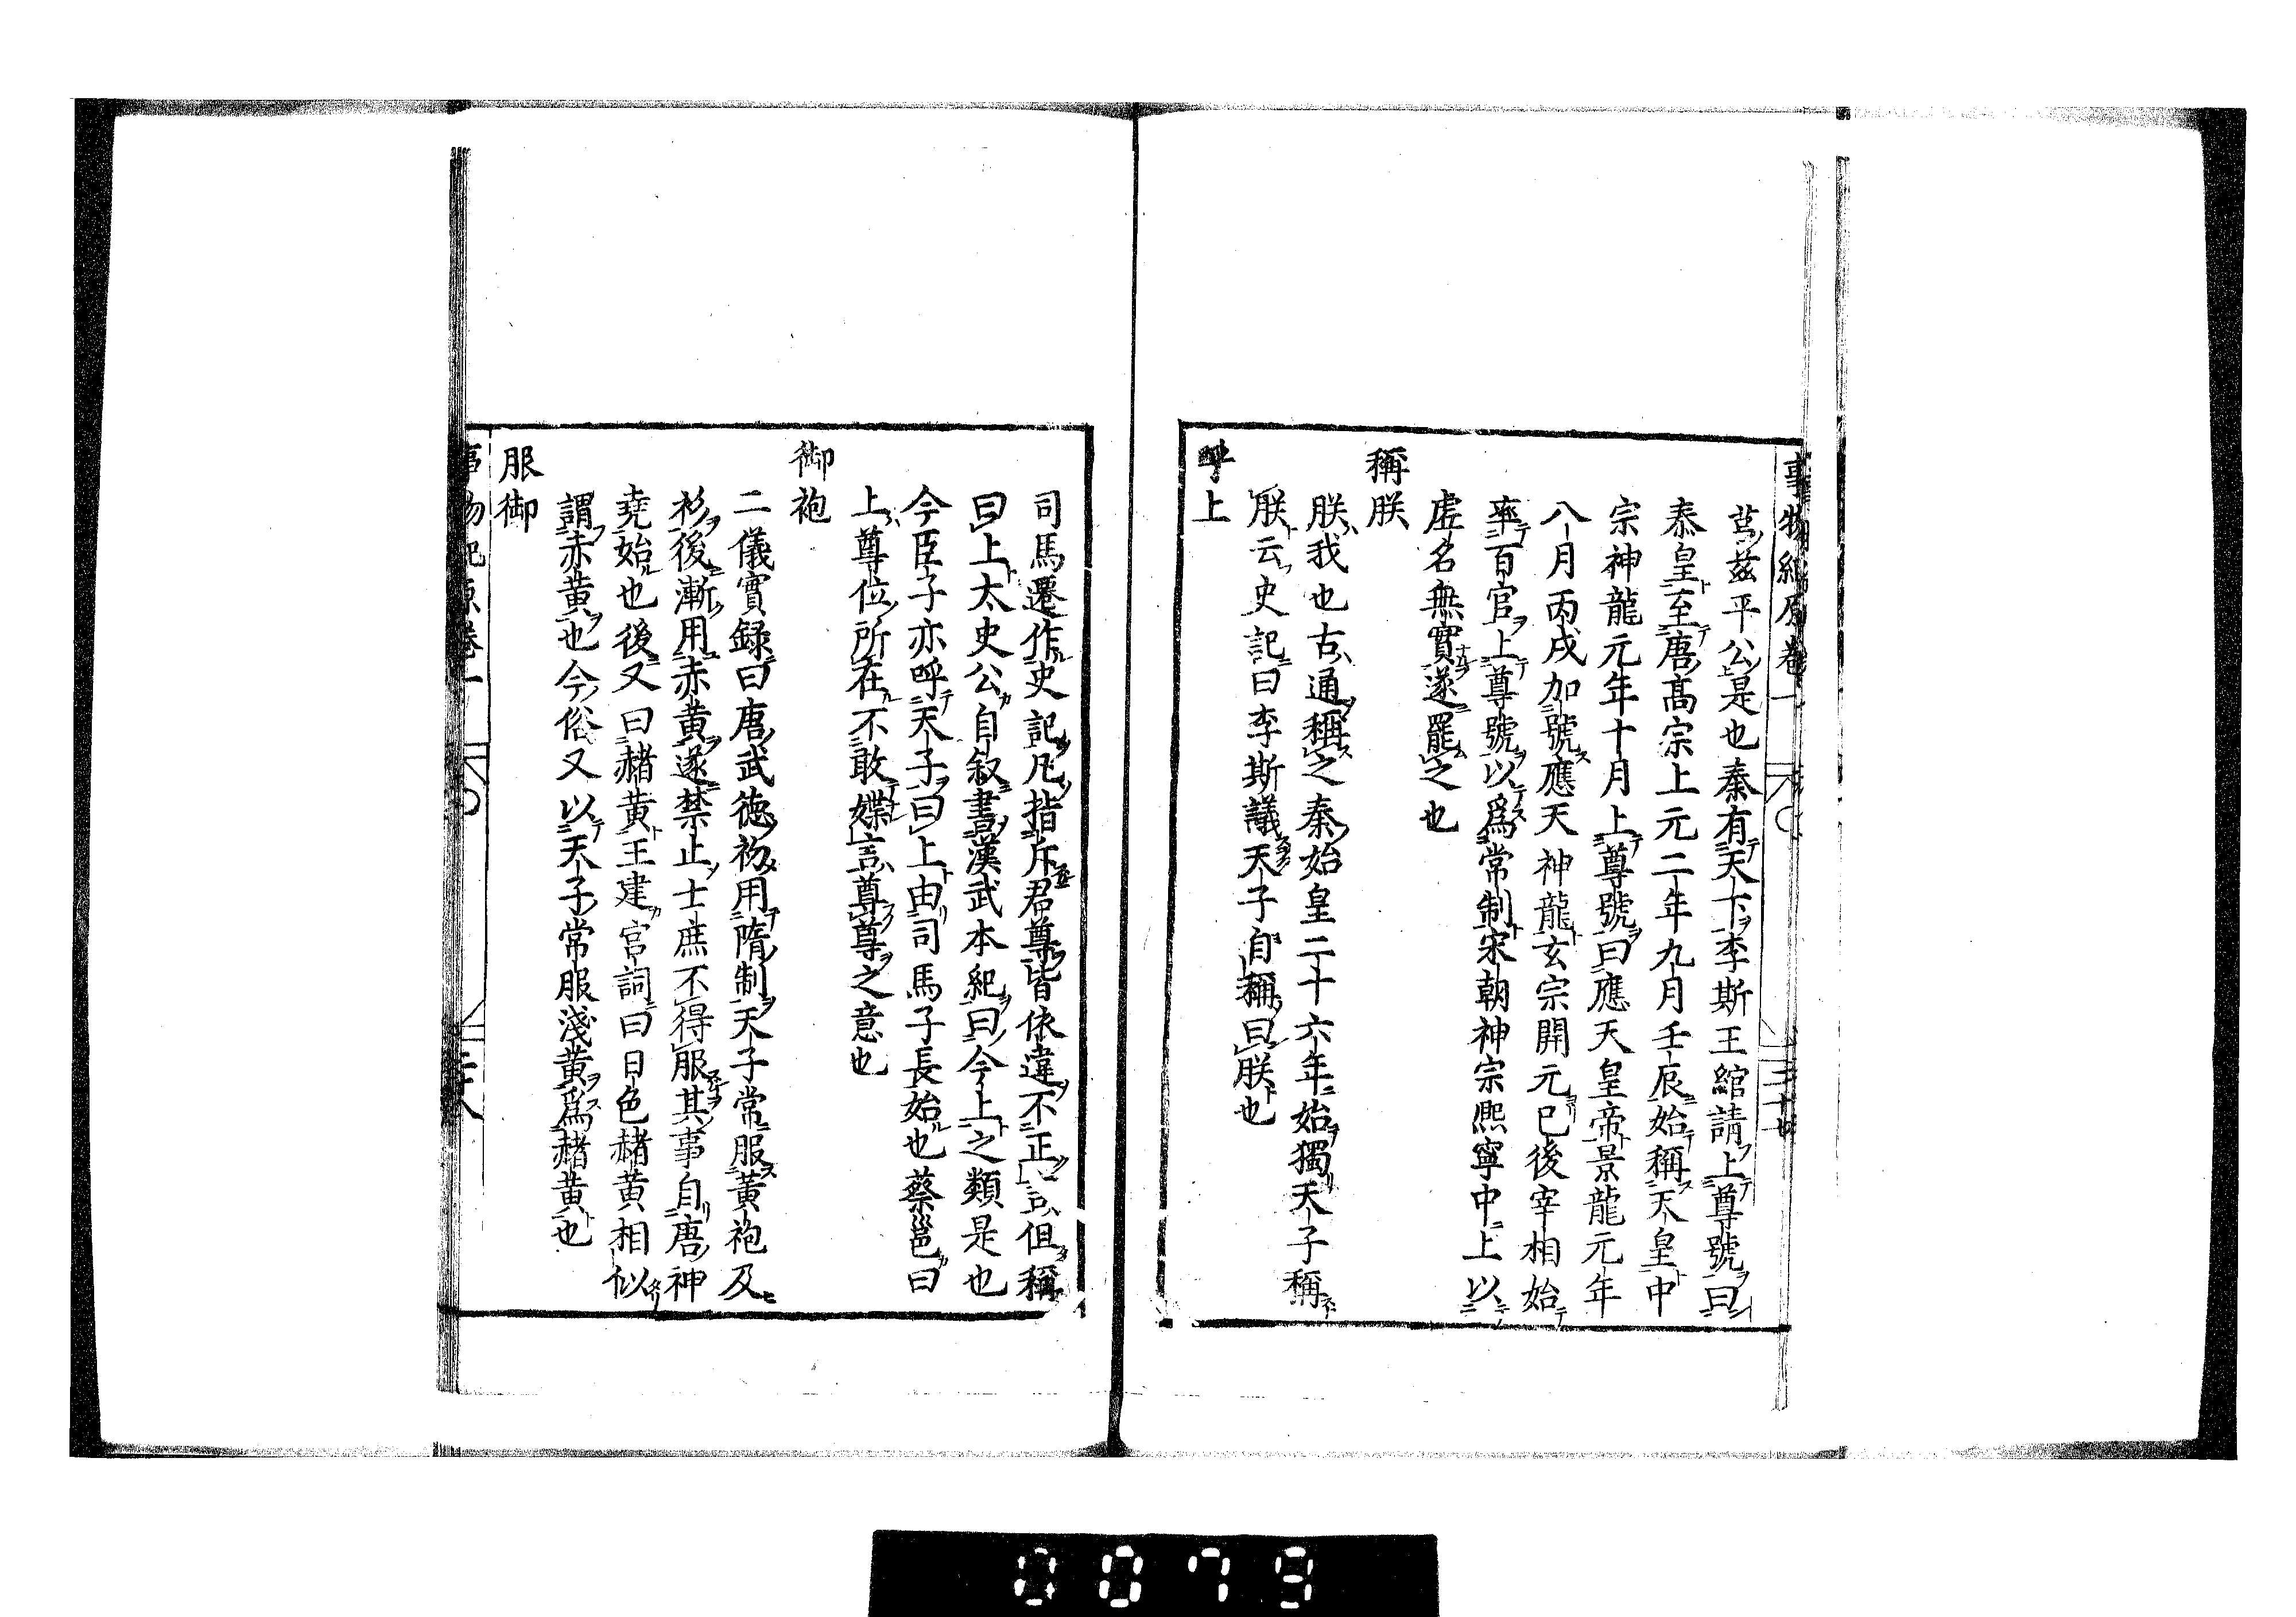 事物紀原卷一 三十七
莒茲平公是也秦有天下李斯王綰請上尊號曰
泰皇至唐髙宗上元二年九月壬辰始稱天皇中
宗神龍元年十月上尊號曰應天皇帝景龍元年
八月丙戌加號應天神龍玄宗開元已後宰相始
率百官上尊號以爲常制宋朝神宗熈寧中上以
虚名無實遂罷之也
稱朕
朕我也古通稱之秦始皇二十六年始獨天子稱
朕云史記曰李斯議天子自稱曰朕也
呼上
司馬遷作史記凡指斥君尊皆依違不正言但稱
曰上太史公自叙書漢武本紀曰今上之類是也
今臣子亦呼天子曰上由司馬子長始也蔡邕曰
上尊位所在不敢媟言尊尊之意也
御袍
二儀實録曰唐武德初用隋制天子常服黃袍及
衫後漸用赤黄遂禁止士庶不得服其事自唐神
堯始也後又曰赭黄王建宫詞曰日色赭黄相似
謂赤黄也今俗又以天子常服淺黄爲赭黄也
服御
事物紀原卷一 三十八
0079